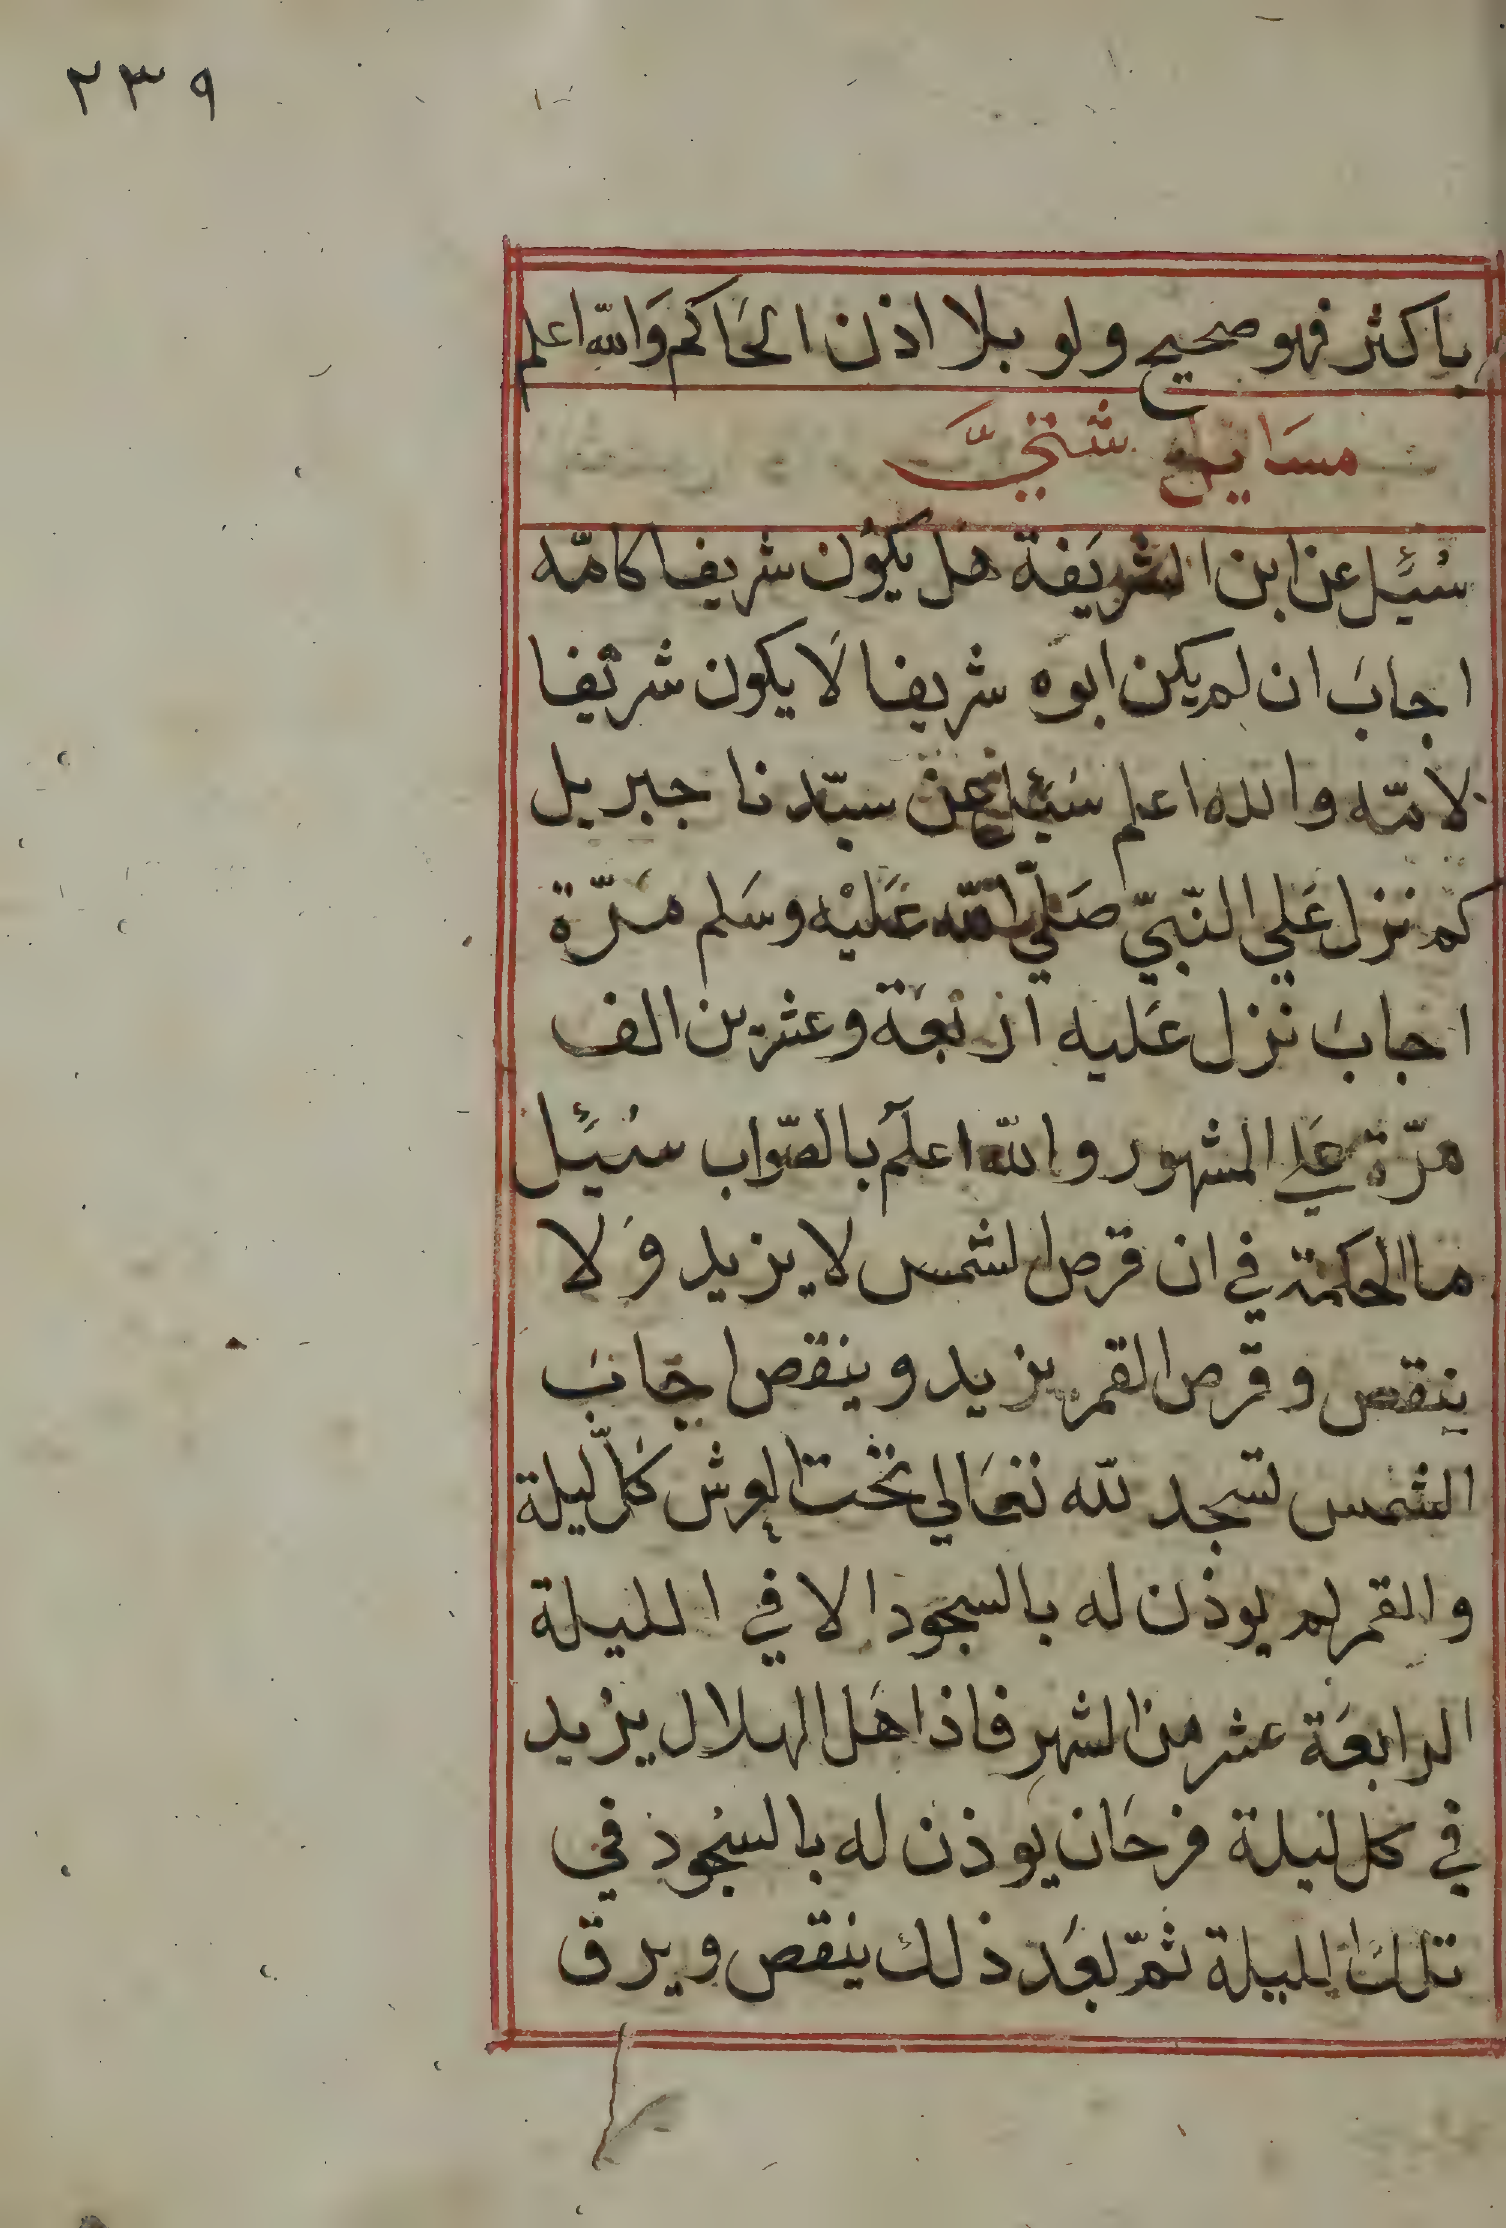 ٢٣٩
باكثر فهو صحيح ولو بلا اذن الحَاكم وَالله اعلم
مسَايل شتيَّ
سُئِل عن ابن الشريَفة هل يكوُن شريفا كامّه
اجابَ ان لم يكن ابوه شريفا لَا يكون شريفا
لامّه والله اعلم سُئِل عن سيّدنا جبريل
كم نزل عَلي النّبيّ صَلّي الله عَليْه وسَلم مَرّة
اجابَ نزل عَليه اربعَة وعشرين الف
مرّة علي المشهور والله اعلم بالصّواب سُئِل
ما الحكمة في ان قرص الشمس لا يزيد وَلا
ينقص وقرص القمر يزيد وينقص اجَابَ
الشمس تسجد لله تعَالي تحت العرش كلَّ ليلة
والقمر لم يوذن له بالسجود الا في الليلة
الرابعَة عشر من الشهر فاذا هَل الهلال يزيد
في كل ليلة فرحَان يوذن له بالسُجود في
تلك الليلة ثمّ بعَد ذلك ينقص ويرق